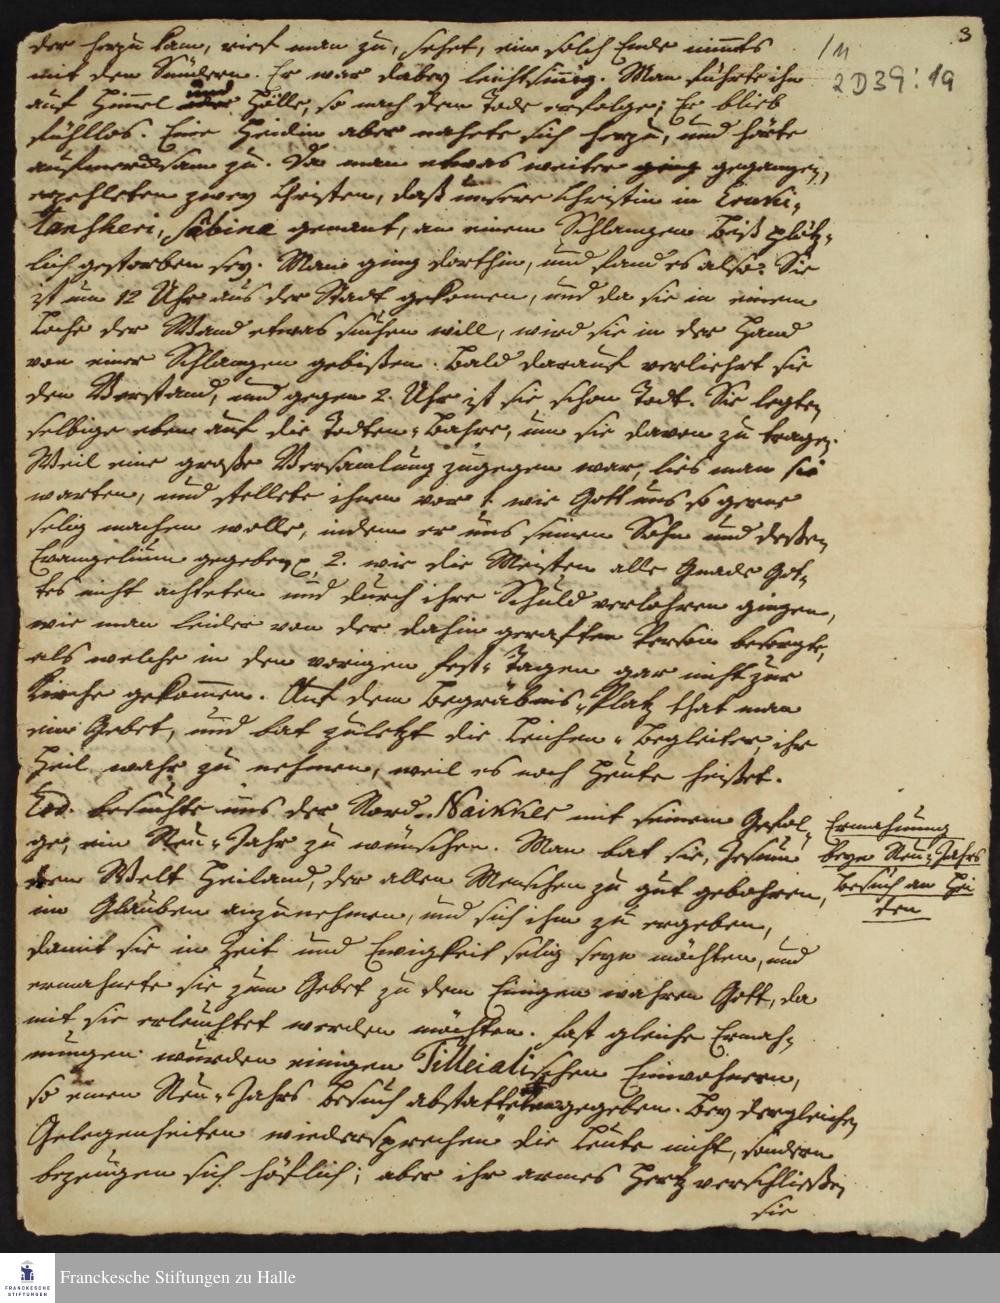 3
1M
2D39:19
der herzu kam, rief man zu, sehet, ein solch Ende nimts
mit den Sündern. Er war dabey leichtsinnig. Man führte ihn
auf Himel und Hölle, so nach dem Tode erfolge; Er blieb
fühllos. Eine Heidin aber nahete sich herzu, und hörte
aufmercksam zu. Da man etwas weiter ging gegangen,
erzehleten zwey Christen, daß unsere Christin in
Sabina genant, an einem Schlangen Biß plötz-
lich gestorben sey. Man ging dorthin, und fand es also. Sie
ist um 12 Uhr aus der Stadt gekomen, und da sie in einem
Loche der Wand etwas suchen will, wird sie in der Hand
von einer Schlangen gebißen. Bald darauf verliehrt sie
den Verstand, und gegen 2. Uhr ist sie schon Todt. Sie legten
selbige eben auf die Todten-Bahre, um sie davon zu tragen.
Weil eine große Versamlung zugegen war, lies man sie
warten, und stellete ihnen vor 1. wie Gott uns so gerne
selig machen wolle, indem er uns seinen Sohn und deßen
Evangelium gegeben 2. wie die Meisten alle Gnade Got-
tes nicht achteten und durch ihre Schuld verlohren gingen,
wie man leider von der dahin geraften Person besorgte,
als welche in den vorigen Fest-Tagen gar nicht zur
Kirche gekomen. Auf dem Begräbnis-Platz that man
ein Gebet, und bat zuletzt die Leichen-Begleiter, ihr
Heil wahr zu nehmen, weil es noch Heute heißet.
Eod. besuchte uns der Nord-Naikker mit seinem Gefol-
ge, ein Neu-Jahr zu wünschen. Man bat sie, Jesum
den Welt Heiland, der allen Menschen zu gut gebohren,
im Glauben anzunehmen, und sich ihm zu ergeben,
damit sie in Zeit und Ewigkeit selig seyn möchten, und
ermahnete sie zum Gebet zu dem Einigen wahren Gott, da
mit sie erleuchtet werden möchten. Fast gleiche Ermah-
nungen wurden einigen Tilleialischen Einwohnern,
so einen Neu-Jahrs Besuch abstatteten gegeben. Bey dergleichen
Gelegenheiten wiedersprechen die Leute nicht, sondern
bezeugen sich höflich; aber ihr armes Hertz verschließen
sie
Ermahnung
beym Neu-Jahrs
Besuch an Hei
den
FRANCKESCHE
STIFTUNGEN
Franckesche Stiftungen zu Halle